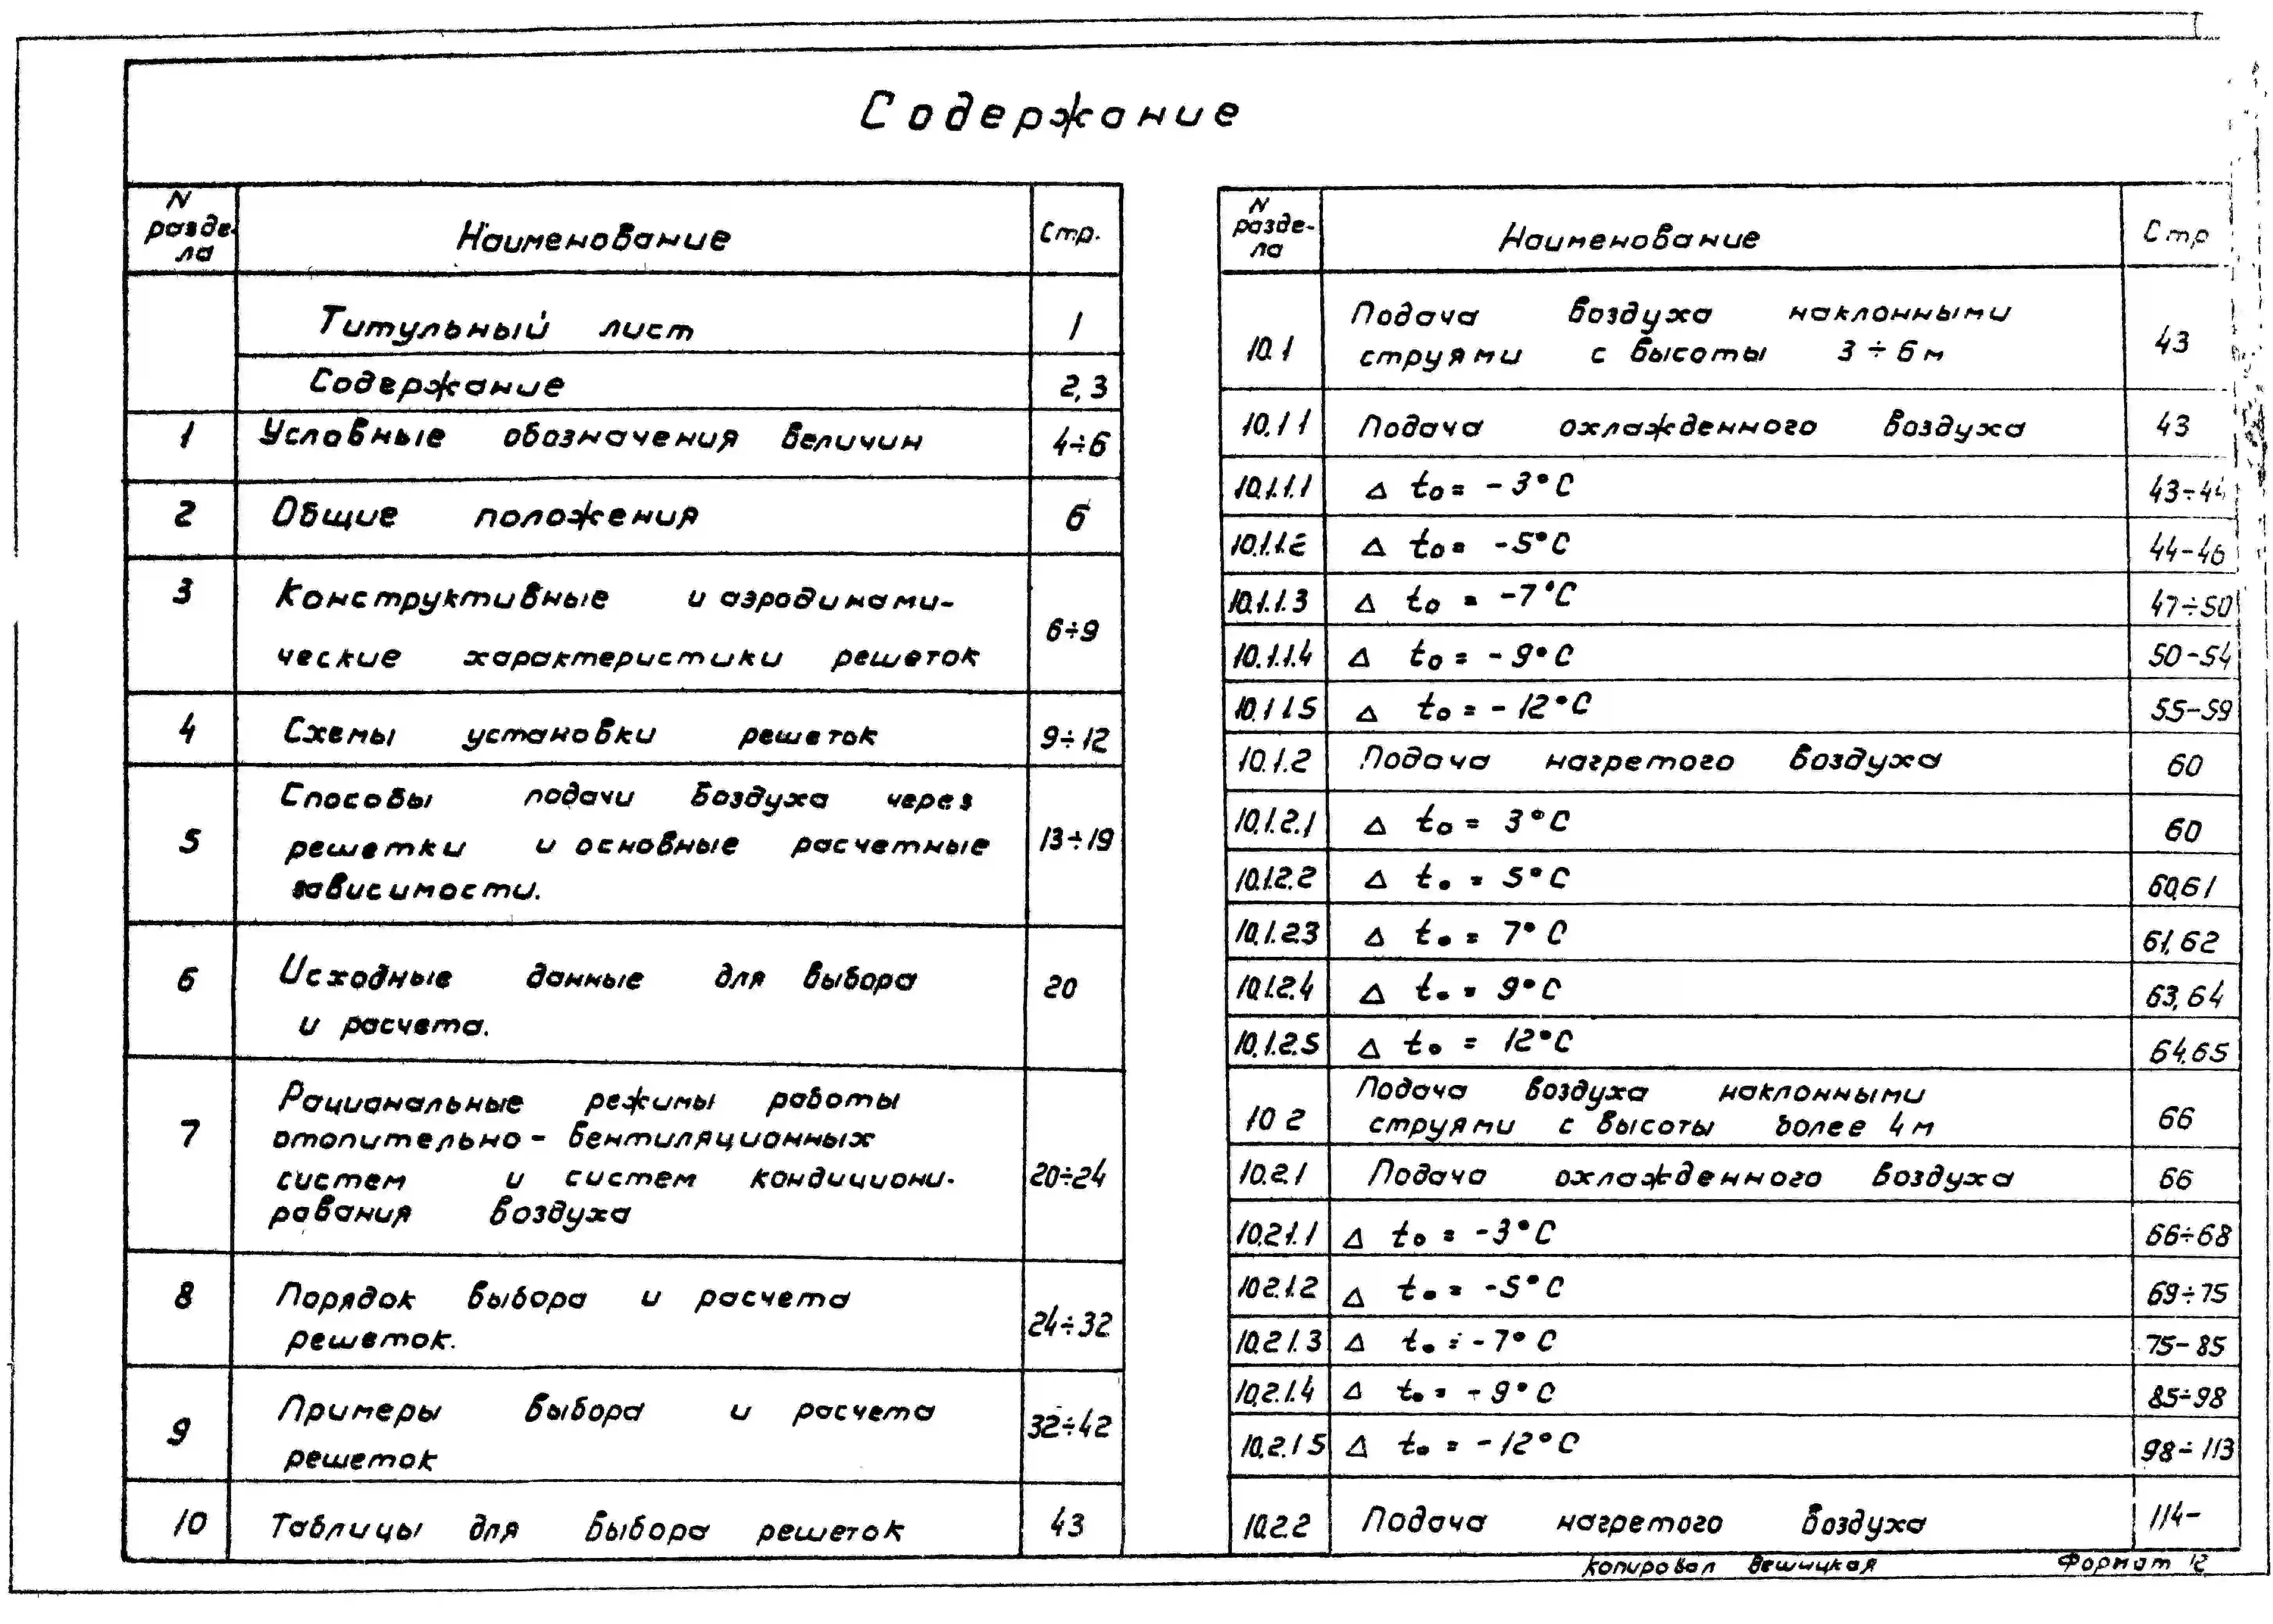 Содержание
N разде-ла Наименование Стр.
Титульный лист 1
Содержание 2,3
1 Условные обозначения величин 4÷6
2 Общие положения 6
3 Конструктивные и аэродинами-
ческие характеристики решеток 6÷9
4 Схемы установки решеток 9÷12
Способы подачи воздуха через
5 решетки и основные расчетные 13÷19
зависимости.
6 Исходные данные для выбора 20
и расчета.
Рациональные режимы работы
7 отопительно- вентиляционных
систем и систем кондициони- 20÷24
рования воздуха
8 Порядок выбора и расчета
решеток. 24÷32
9 Примеры выбора и расчета 32÷42
решеток
10 Таблицы для выбора решеток 43
N разде-ла Наименование Стр
Подача воздуха наклонными
10.1 струями с высоты 3÷6м 43
10.1 1 Подача охлажденного воздуха 43
10.1.1.1 Δ to= -3°C 43÷44
10.1.1.2 Δ to= -5°C 44-46
10.1.1.3 Δ to = -7°C 47÷50
10.1.1.4 Δ to= -9°C 50-54
10.1 1.5 Δ to= -12°C 55-59
10.1.2 Подача нагретого воздуха 60
10.1.2.1 Δ to= 3°C 60
10.1.2.2 Δ to = 5°C 60,61
10.1.2.3 Δ to = 7°C 61,62
10.1.2.4 Δ to = 9°C 63,64
10.1.2.5 Δ to = 12°C 64,65
Подача воздуха наклонными
10 2 струями с высоты более 4м 66
10.2.1 Подача охлажденного воздуха 66
10.2.1.1 Δ to = -3°C 66÷68
10.2.1.2 Δ to = -5°C 69÷75
10.2.1.3 Δ to = -7°C 75-85
10.2.1.4 Δ to = -9°C 85÷98
10.2.1 5 Δ to = -12°C 98÷113
10.2.2 Подача нагретого воздуха 114-
Копировал Вешицкая Формат 12